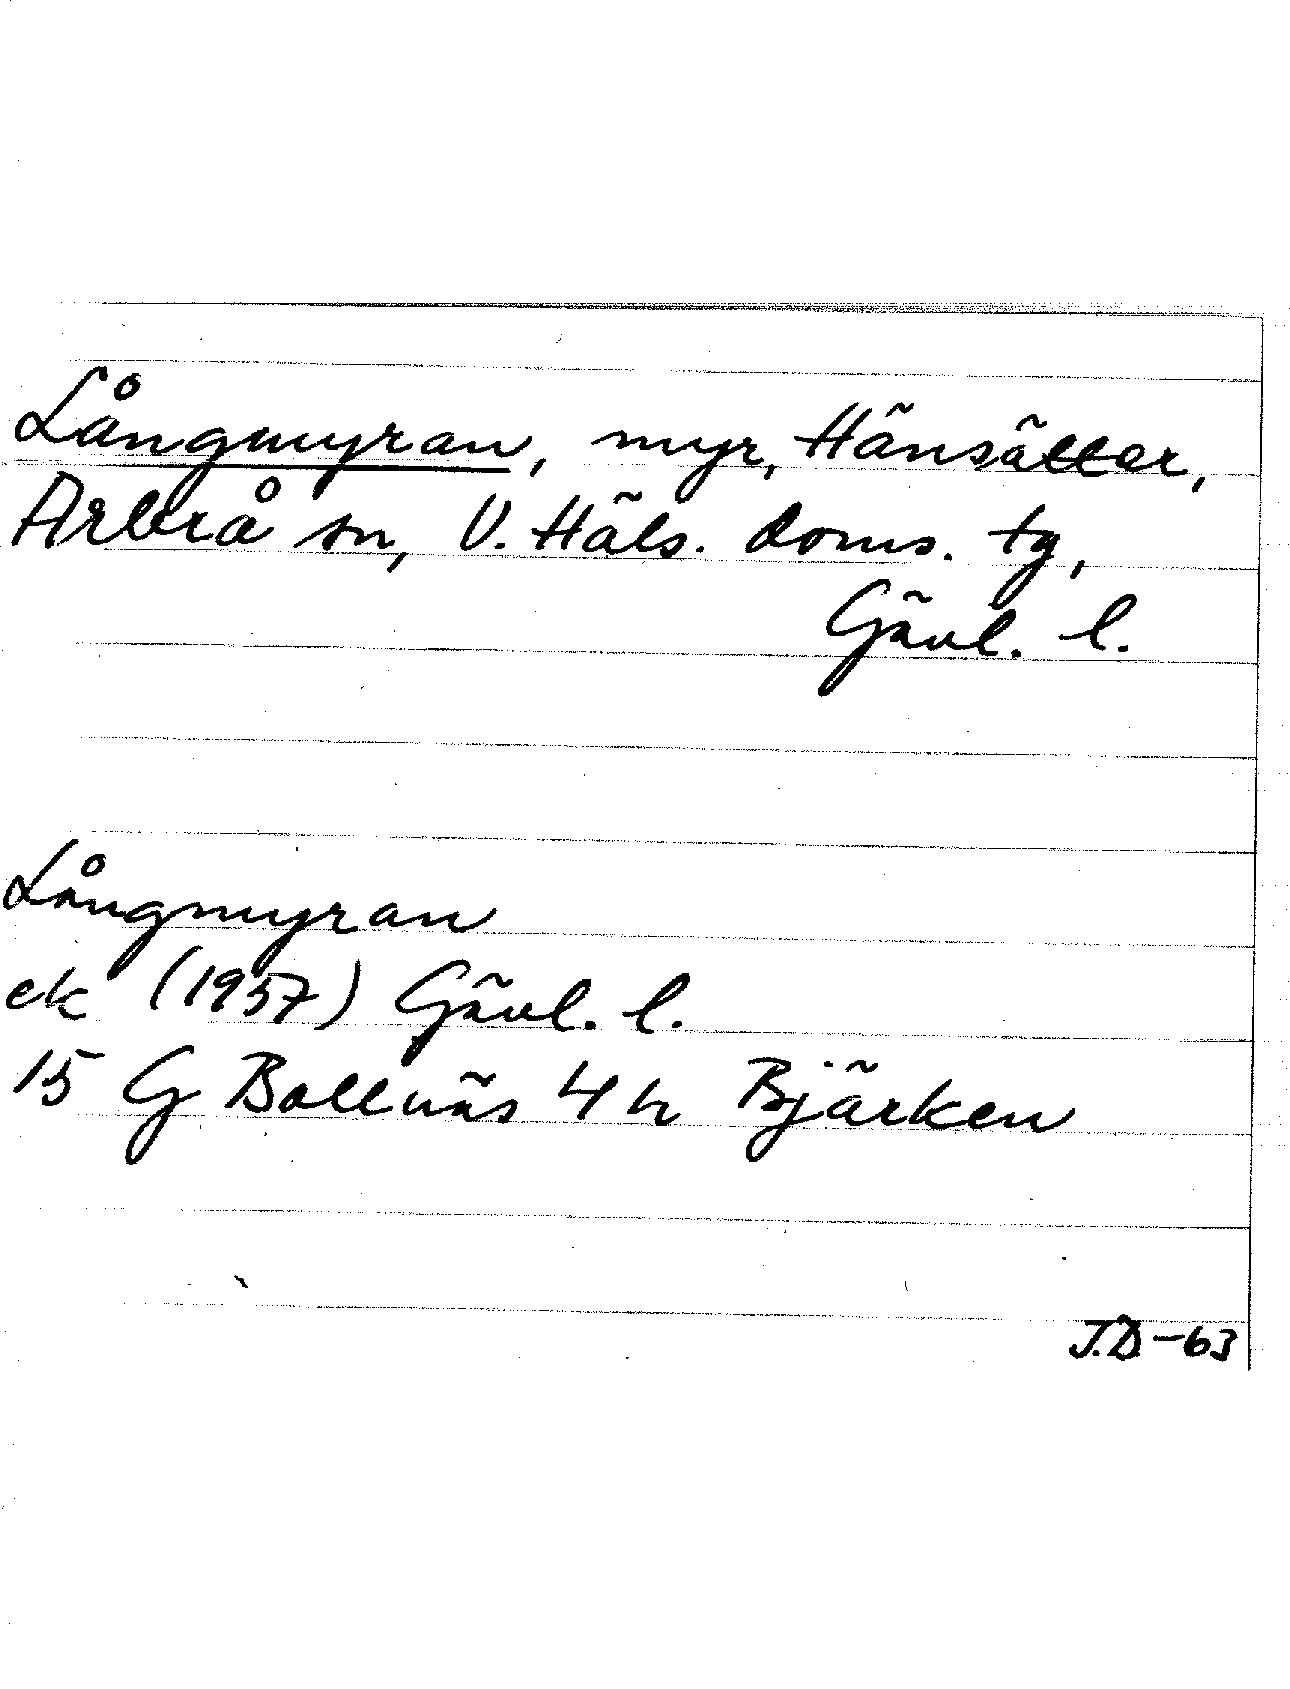 Långmyran, myr, Hänsätter,
Arbrå sn, V. Häls. doms. tg,
Gävl. l.
Långmyran
ek (1957) Gävl. l.
15 G Bollnäs 4 h Bjärken
J.D-63